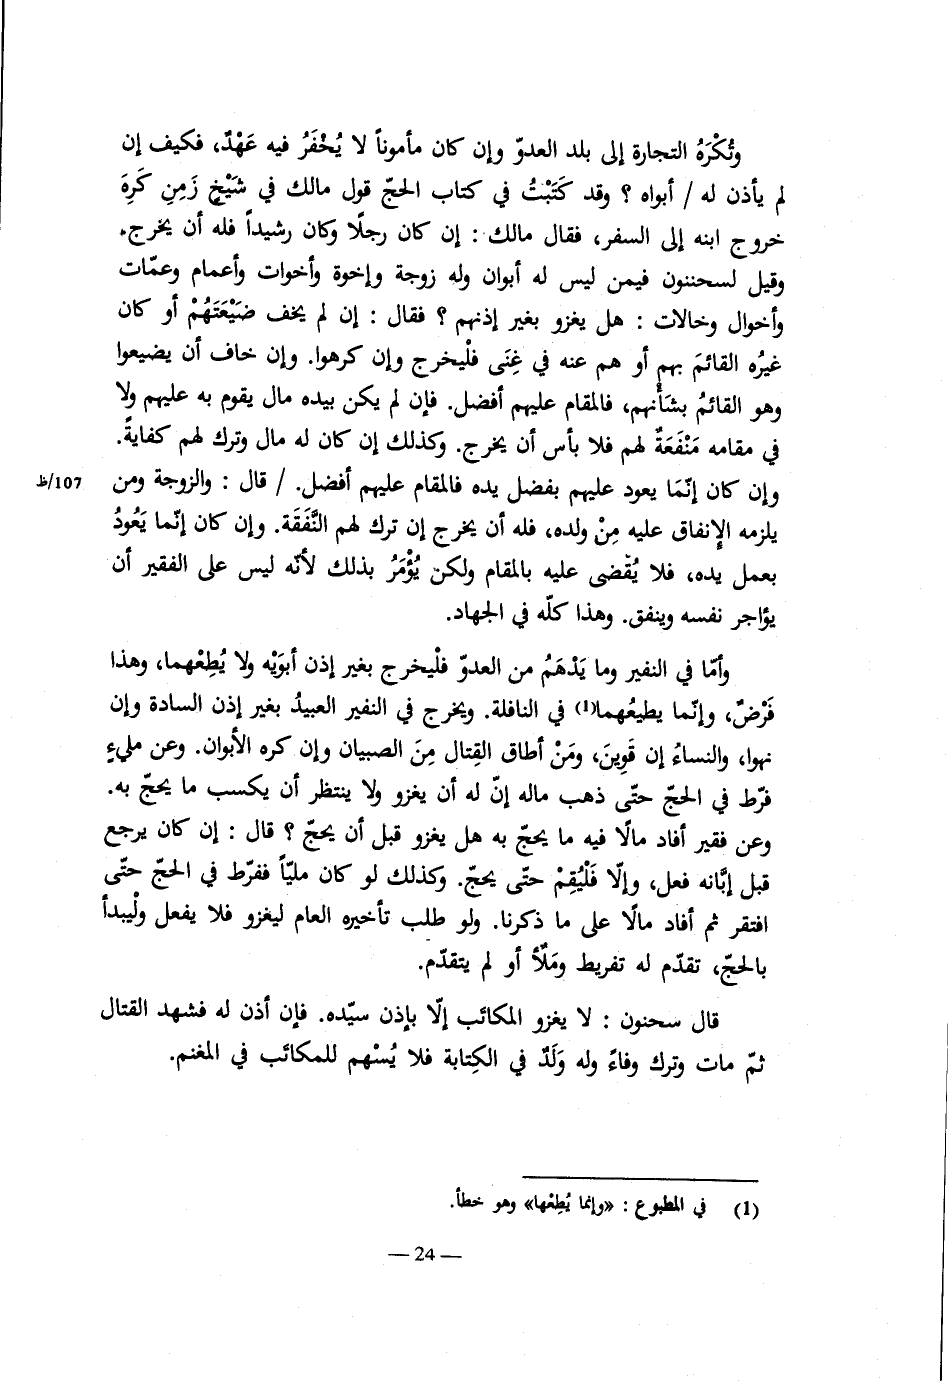 وتُكْرَهُ التجارة إلى بلد العدوّ وإن كان مأموناً لا يُخْفَرُ فيه عَهْدٌ، فكيف إن
لم يأذن له / أبواه ؟ وقد كَتَبْتُ في كتاب الحجّ قول مالك في شَيْخٍ زَمِنِ كَرِهَ
خروج ابنه إلى السفر، فقال مالك : إن كان رجلًا وكان رشيداً فله أن يخرج.
وقيل لسحننون فيمن ليس له أبوان وله زوجة وإخوة وأخوات وأعمام وعمّات
وأخوال وخالات : هل يغزو بغير إذنهم ؟ فقال : إن لم يخف ضَيْعَتَهُمْ أو كان
غيرُه القائمَ بهم أو هم عنه في غِنَى فلْيخرج وإن كرهوا. وإن خاف أن يضيعوا
وهو القائمُ بشَأْنهم، فالمقام عليهم أفضل. فإن لم يكن بيده مال يقوم به عليهم ولا
في مقامه مَنْفَعَةٌ لهم فلا بأس أن يخرج. وكذلك إن كان له مال وترك لهم كفايةً.
وإن كان إنّمَا يعود عليهم بفضل يده فالمقام عليهم أفضل. / قال : والزوجة ومن
107/ظ
يلزمه الإنفاق عليه مِنْ ولده، فله أن يخرج إن ترك لهم النَّفَقَة. وإن كان إنّما يَعُودُ
بعمل يده، فلا يُقْضى عليه بالمقام ولكن يُؤْمَرُ بذلك لأنّه ليس على الفقير أن
يؤاجر نفسه وينفق. وهذا كلّه في الجهاد.
وأمّا في النفير وما يَدْهَمُ من العدوّ فلْيخرج بغير إذن أبوَيْه ولا يُطِعْهما، وهذا
فَرْضٌ، وإنّما يطيعُهما(1) في النافلة. ويخرج في النفير العبيدُ بغير إذن السادة وإن
نهوا، والنساءُ إن قَوِينَ، ومَنْ أطاق القِتال مِنَ الصبيان وإن كره الأبوان. وعن مليءٍ
فرّط في الحجّ حتّى ذهب ماله إنّ له أن يغزو ولا ينتظر أن يكسب ما يحجّ به.
وعن فقير أفاد مالًا فيه ما يحجّ به هل يغزو قبل أن يحجّ ؟ قال : إن كان يرجع
قبل إبَّانه فعل، وإلّا فَلْيُقِمْ حتّى يحجّ. وكذلك لو كان مليّاً ففرّط في الحجّ حتّى
افتقر ثم أفاد مالًا على ما ذكرنا. ولو طلب تأخيره العام ليغزو فلا يفعل ولْيبدأ
بالحجّ، تقدّم له تفريط ومَلْأٌ أو لم يتقدّم.
قال سحنون : لا يغزو المكاتَب إلّا بإذن سيّده. فإن أذن له فشهد القتال
ثمّ مات وترك وفاءً وله وَلَدٌ في الكِتابة فلا يُسْهم للمكاتَب في المغنم.
(1) في المطبوع : «وإنما يُطِعْها» وهو خطأ.
— 24 —